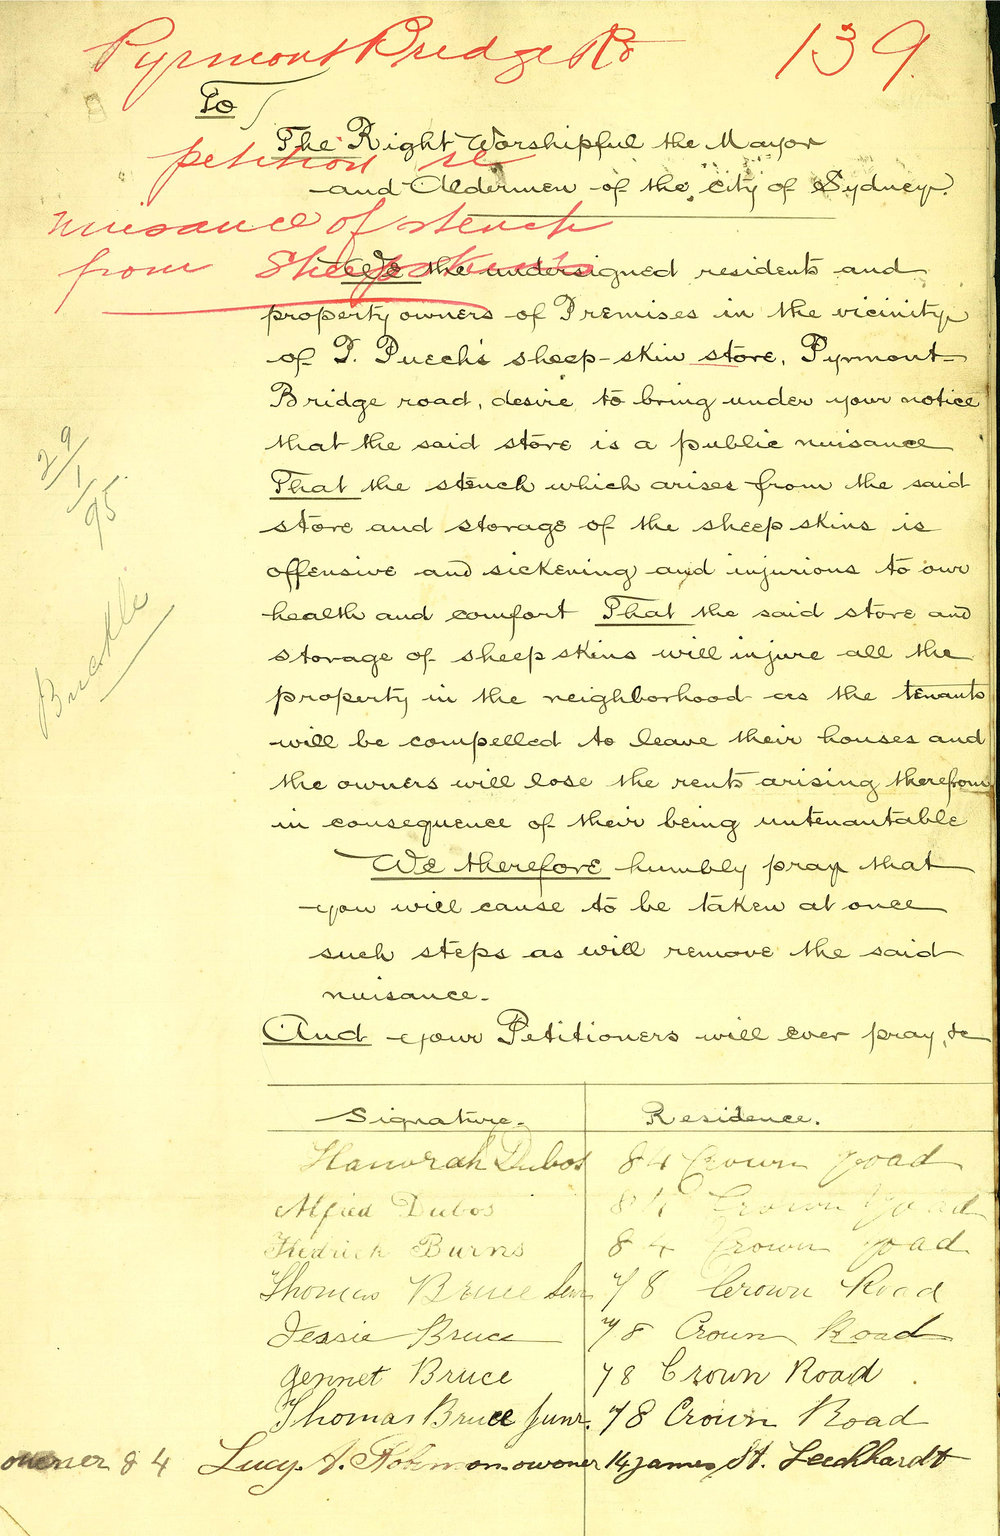 Pyrmont Bridge Rd 139
To
The Right Worshipful the Mayor
and Aldermen of the city of Sydney.
petition re
nuisance of stench
from Sheepskins
We the undersigned residents and
property owners of Premises in the vicinity
of P. Puech's sheep-skin store, Pyrmont
Bridge road, desire to bring under your notice
that the said store is a public nuisance
That the stench which arises from the said
store and storage of the sheep skins is
offensive and sickening and injurious to our
health and comfort That the said store and
storage of sheep skins will injure all the
property in the neighborhood as the tenants
will be compelled to leave their houses and
the owners will lose the rents arising therefrom
in consequence of their being untenantable
We therefore humbly pray that
you will cause to be taken at once
such steps as will remove the said
nuisance.
And your Petitioners will ever pray, &c
29/1/95.
Signature. Residence.
Hanorah Dubos 84 Crown Road
Alfred Dubos 84 Crown Road
Fredrick Burns 84 Crown Road
Thomas Bruce Senr 78 Crown Road
Jessie Bruce 78 Crown Road
Jennet Bruce 78 Crown Road
Thomas Bruce Junr. 78 Crown Road
owener 84 Lucy A. owoner 14 James St. Leechhardt